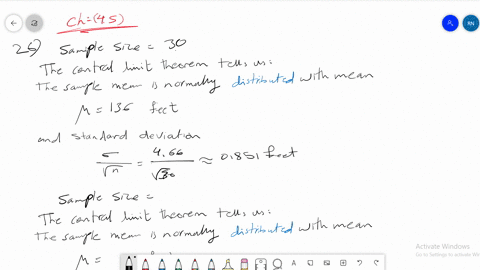 Ch=(45)
RN
25) Sample Size = 30
The central limit theorem tells us:
The sample mean is normally distributed with mean
μ = 136 feet
and standard deviation
σ/√n = 4.66/√30 ≈ 0.851 feet
Sample Size =
The central limit theorem tells us:
The sample mean is normally distributed with mean
μ =
Activate Windows
Go to Settings to activate Wi